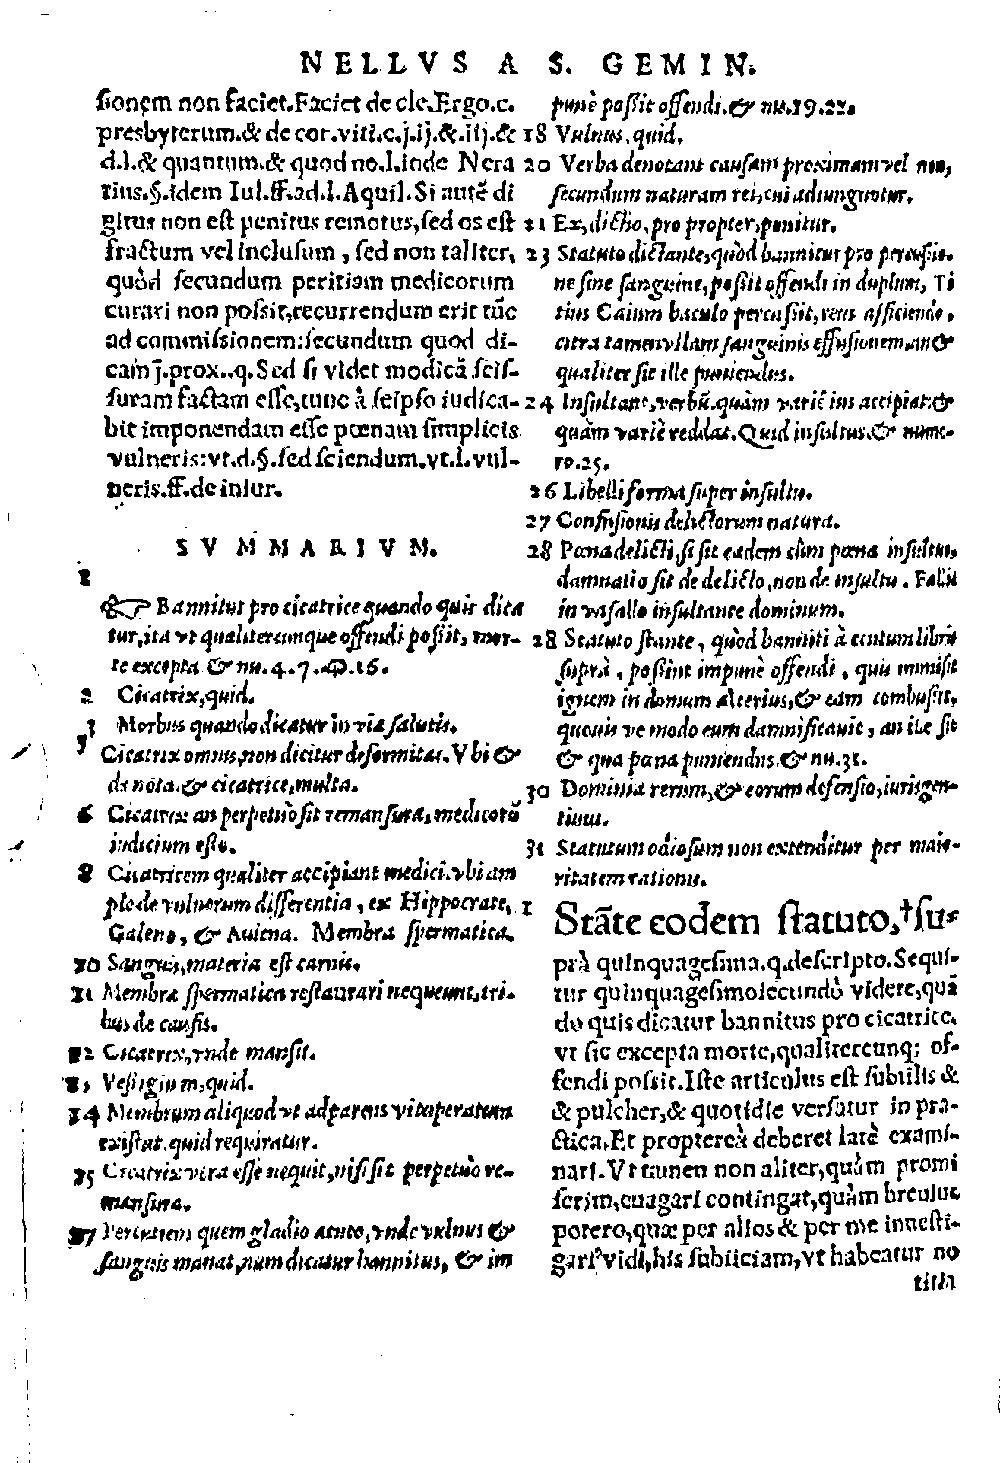 NELLVS A S. GEMIN.
sionem non faciet. Faciet de cle. Ergo. c.
presbyterum. & de cor. viti. c. j. ij. &. iij. &
d. l. & quantum. & quod no. l. inde Nera
tius. §. idem Iul. ff. ad. l. Aquil. Si autẽ di
gitus non est penitus remotus, sed os est
fractum vel inclusum, sed non taliter,
quòd secundum peritiam medicorum
curari non possit, recurrendum erit tũc
ad commissionem: secundum quod di-
cam j. prox.. q. Sed si videt modicã scis-
suram factam esse, tunc à seipso iudica-
bit imponendam esse pœnam simplicis
vulneris: vt. d. §. sed sciendum. vt. l. vul-
neris. ff. de iniur.
SVMMARIVM.
1
☞ Bannitur pro cicatrice quando quis dica
tur, ita vt qualitercumque offendi possit, mor-
te excepta & nu. 4. 7. & 16.
2 Cicatrix, quid.
3 Morbus quando dicatur in via salutis.
5 Cicatrix omnis, non dicitur deformitas. Vbi &
de nota. & cicatrice, multa.
6 Cicatrix an perpetuò sit remansura, medicorũ
iudicium esto.
8 Cicatricem qualiter accipiant medici. vbi am
plè de vulnerum differentia, ex Hippocrate,
Galeno, & Auicena. Membra spermatica.
10 Sanguis, materia est carnis.
11 Membra spermatica restaurari nequeunt, tri-
bus de causis.
12 Cicatrix, vnde mansit.
13 Vestigium, quid.
14 Membrum aliquod vt ad parens vituperatum
existat. quid requiratur.
15 Cicatrix vera esse nequit, nisi sit perpetuò re-
mansura.
17 Percutiens quem gladio acuto, vnde vulnus &
sanguis manat, num dicatur bannitus, & im
punè possit offendi. & nu. 19. 22.
18 Vulnus, quid.
20 Verba denotant causam proximam vel non,
secundum naturam rei, cui adiunguntur.
21 Ex, dictio, pro propter, ponitur.
23 Statuto dictante, quòd bannitur pro percussio-
ne sine sanguine, possit offendi in duplum, Ti
tius Caium baculo percussit, reus afficiendo,
citra tamen vllam sanguinis effusionem, an &
qualiter sit ille puniendus.
24 Insultare, verbũ. quàm variè ius accipiat. &
quàm variè reddat. Quid insultus. & nume-
ro. 25.
26 Libelli forma super insultu.
27 Confusionis delictorum natura.
28 Pœna delicti, si sit eadem cùm pœna insultus,
damnatio sit de delicto, non de insultu. Fallit
in vasallo insultante dominum.
28 Statuto stante, quòd banniti à centum libris
suprà, possint impunè offendi, quis immisit
ignem in domum alterius, & eam combussit,
quouis ve modo eum damnificauit, an ille sit
& qua pœna puniendus. & nu. 31.
30 Dominia rerum, & eorum defensio, iurisgen-
tium.
31 Statutum odiosum non extenditur per maio-
ritatem rationis.
1 Stãte eodem statuto, †su-
prà quinquagesima. q. descripto. Sequi-
tur quinquagesimosecundò videre, quã
do quis dicatur bannitus pro cicatrice.
vt sic excepta morte, qualitercunq; of-
fendi possit. Iste articulus est subtilis &
& pulcher, & quotidie versatur in pra-
ctica, Et proptereà deberet latè exami-
nari. Vt tamen non aliter, quàm promi
serim, euagari contingat, quàm breuius
potero, quæ per alios & per me inuesti-
gari vidi, his subiiciam, vt habeatur no
titia